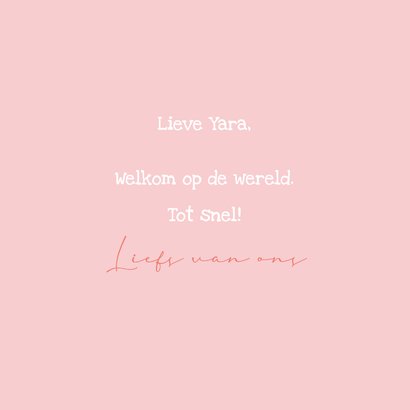 Lieve Yara,
Welkom op de wereld.
Tot snel!
Liefs van ons